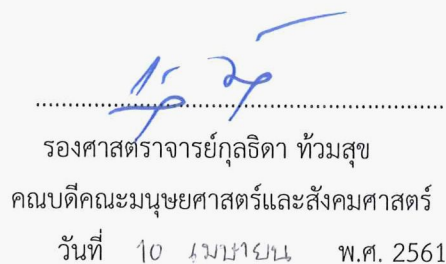 รองศาสตราจารย์กุลธิดา ท้วมสุข
คณบดีคณะมนุษยศาสตร์และสังคมศาสตร์
วันที่ 10 เมษายน พ.ศ. 2561